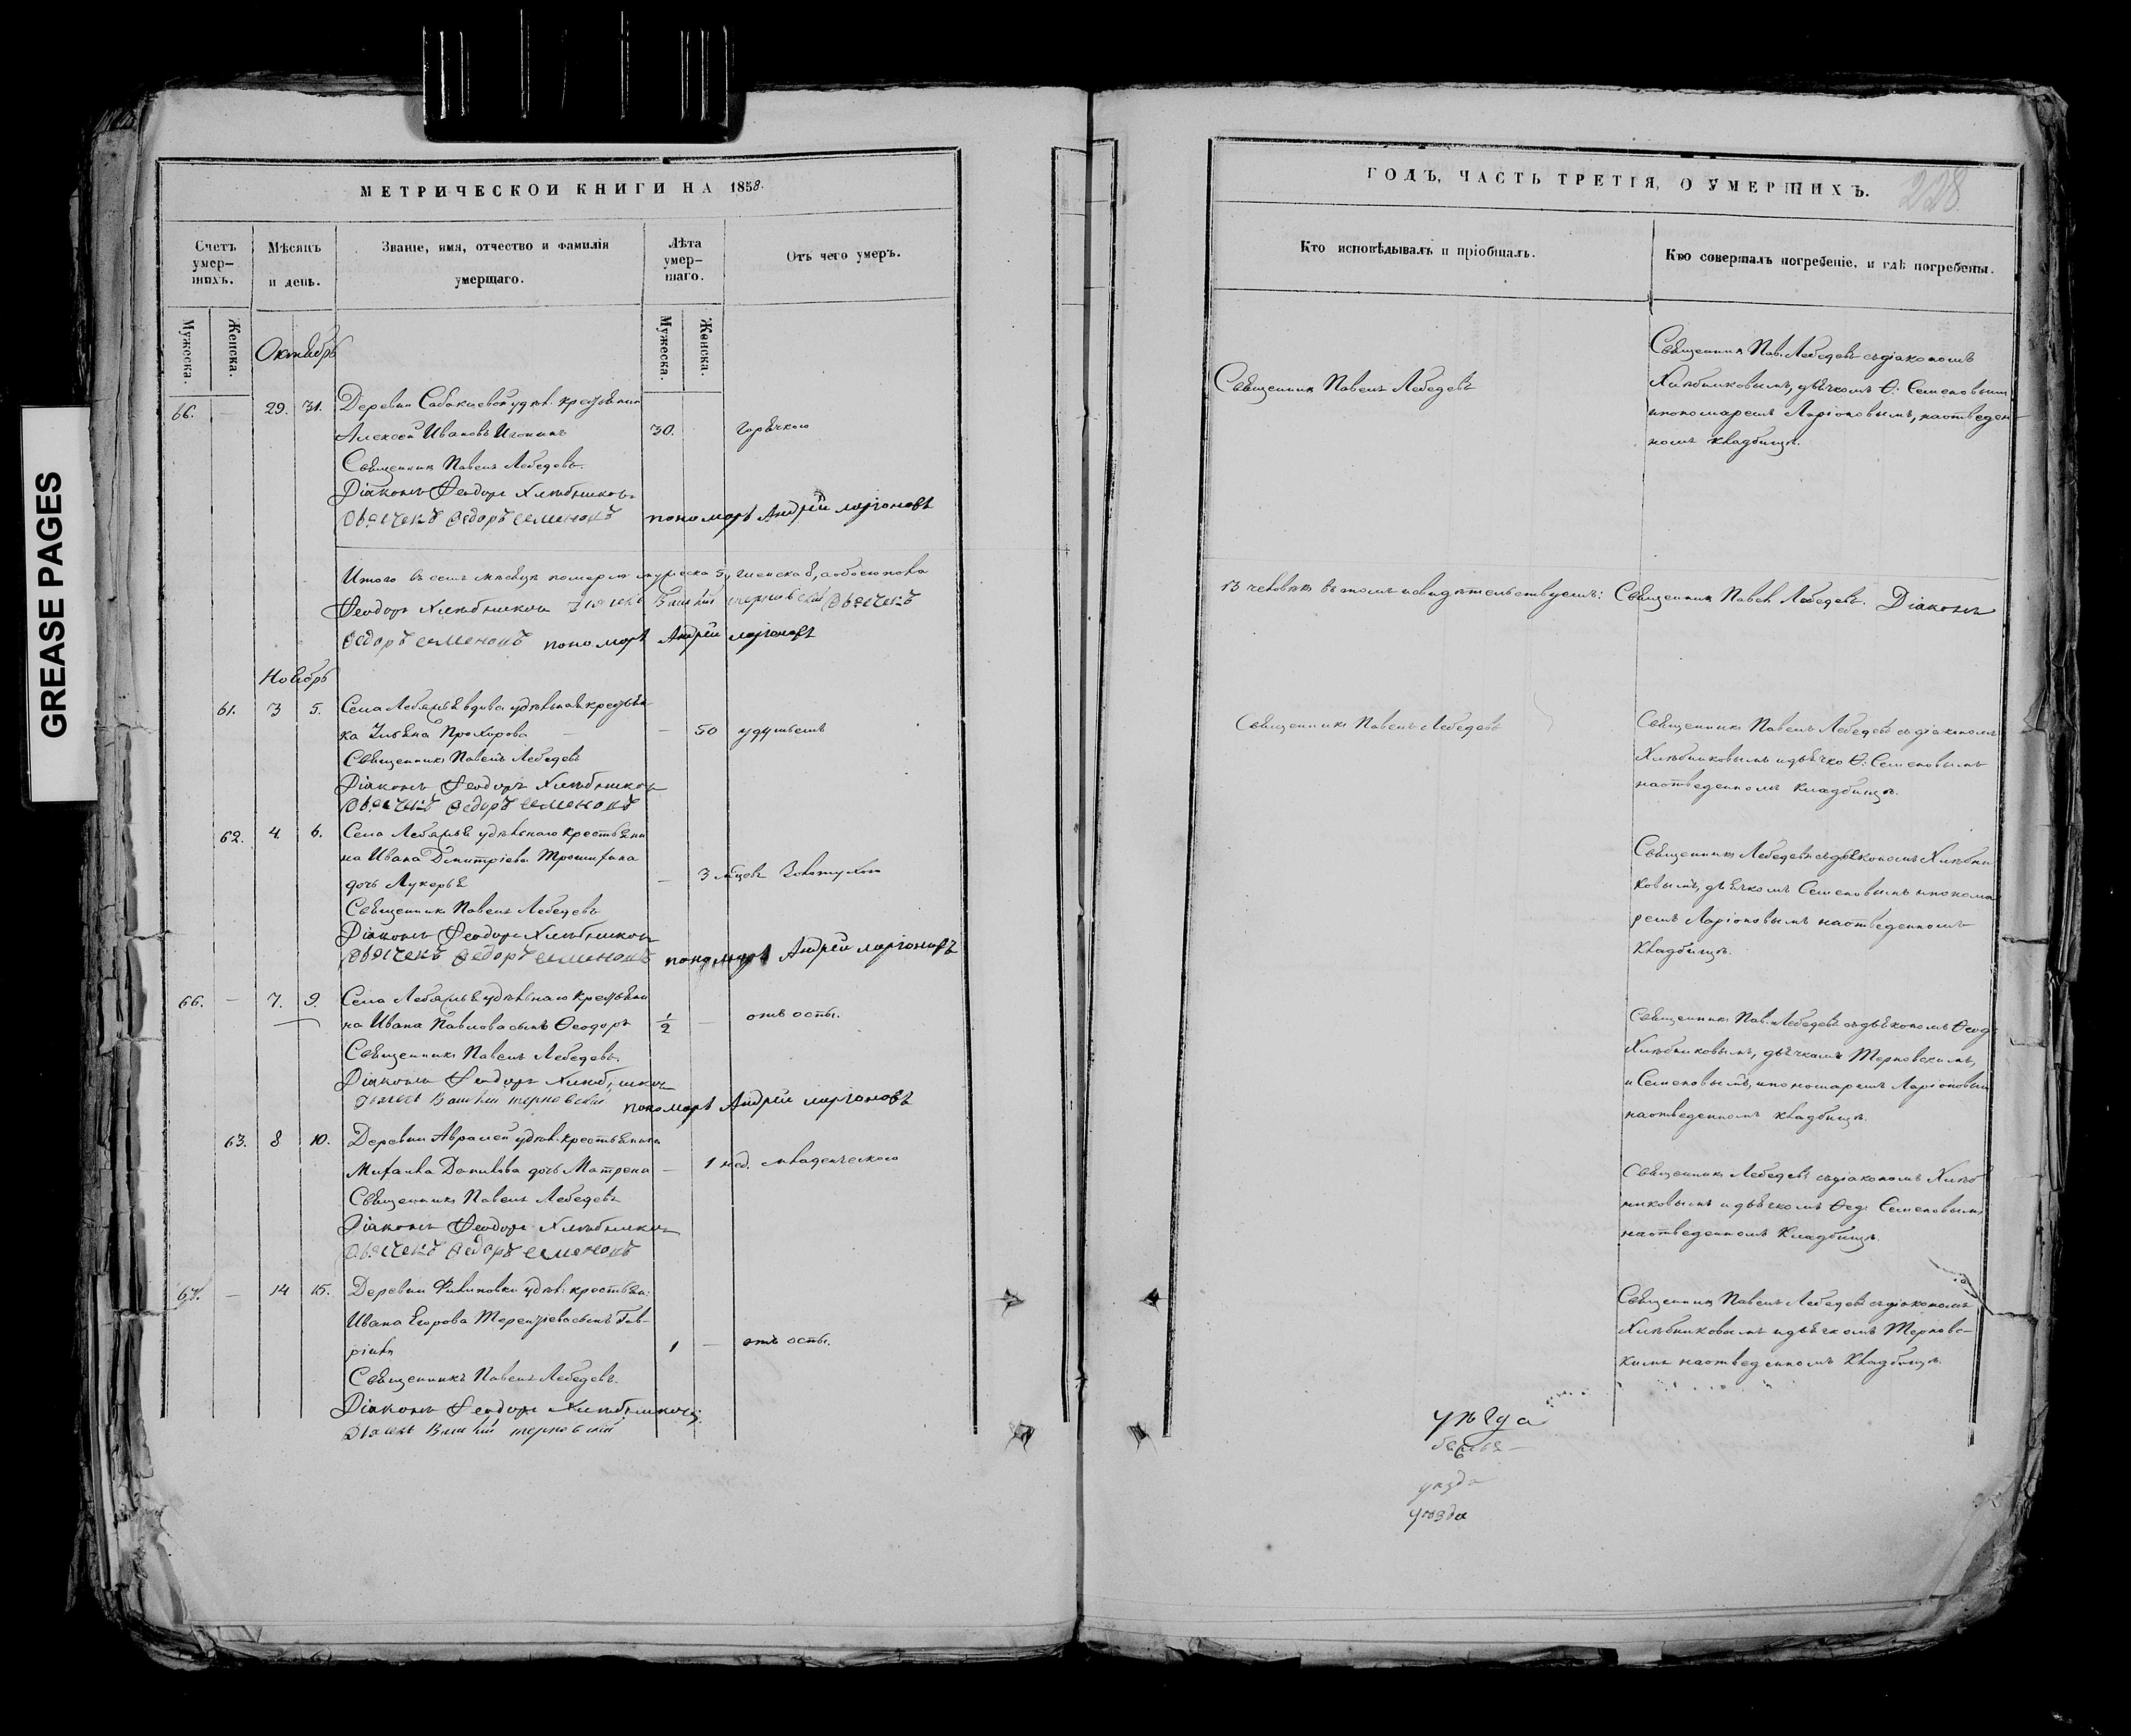 GREASE PAGES
МЕТРИЧЕСКОИ КНИГИ НА 1858.
Счетъ умер-шихъ.
Мѣсяцъ и день.
Званіе, имя, отчество и фамилія умершаго.
Лѣта умер-шаго.
Отъ чего умеръ.
Мужеска.
Женска.
Мужеска.
Женска.
Октябрь
66. — 29. 31. Деревни Собакаевой удѣл. крестьянин
Алексей Ивановъ 30. горячкою
Священникъ Павелъ Лебедевъ.
Діаконъ Феодоръ Хлѣбниковъ
Дьячекъ Ѳедоръ Семеновъ пономарь Андрей Ларіоновъ
Итого въ семъ мѣсяцѣ померло мужеска 5, женска 8, а обоего пола
Феодоръ Хлѣбниковъ Дьячекъ Василій Терновскій Дьячекъ
Ѳедоръ Семеновъ пономарь Андрей Ларіоновъ
Ноябрь
61. 3 5. Села Лебяжья вдова удѣльная крестьян-
ка Ульяна Прохорова — 50 удушьемъ
Священникъ Павелъ Лебедевъ
Діаконъ Феодоръ Хлѣбниковъ
Дьячекъ Ѳедоръ Семеновъ
62. 4. 6. Села Лебяжья удѣльнаго крестьяни
на Ивана Дмитріева Трошихина
дочь Лукерья — 3 мѣсцевъ золотухою
Священникъ Павелъ Лебедевъ
Діаконъ Феодоръ Хлѣбниковъ
Дьячекъ Ѳедоръ Семеновъ пономарь Андрей Ларіоновъ
66. — 7. 9. Села Лебяжья удѣльнаго крестьяни
на Ивана Павлова сынъ Ѳеодоръ 1/2 — отъ оспы.
Священникъ Павелъ Лебедевъ.
Діаконъ Феодоръ Хлѣбниковъ
Дьячекъ Василій Терновскій пономарь Андрей Ларіоновъ
63. 8 10. Деревни Авралей удѣл. крестьянина
Михаила Данилова дочь Матрена — 1 нед. младенческою
Священникъ Павелъ Лебедевъ
Діаконъ Феодоръ Хлѣбниковъ
Дьячекъ Ѳедоръ Семеновъ
67. — 14 15. Деревни Филиповки удѣл. крестьян:
Ивана Егорова Терентіева сынъ Гав-
ріилъ 1 — отъ оспы.
Священникъ Павелъ Лебедевъ.
Діаконъ Феодоръ Хлѣбниковъ
Дьячекъ Василій Терновскій
ГОДЪ, ЧАСТЬ ТРЕТІЯ, О УМЕРШИХЪ.
228
Кто исповѣдывалъ и пріобщалъ.
Кто совершалъ погребеніе, и гдѣ погребены.
Священникъ Павелъ Лебедевъ
Священникъ Пав. Лебедевъ съ діакономъ
Хлѣбниковымъ, дьячкомъ Ѳ: Семеновымъ
и пономаремъ Ларіоновымъ, на отведен-
номъ кладбищѣ.
13 человѣкъ въ томъ и свидѣтельствуемъ: Священникъ Павелъ Лебедевъ. Діаконъ
Священникъ Павелъ Лебедевъ
Священникъ Павелъ Лебедевъ съ діакономъ
Хлѣбниковымъ и дьячко Ѳ: Семеновымъ
на отведенномъ кладбищѣ.
Священникъ Лебедевъ съ дьякономъ Хлѣбни
ковымъ, дьячкомъ Семеновымъ и понома
ремъ Ларіоновымъ на отведенномъ
кладбищѣ.
Священникъ Пав. Лебедевъ съ дьякономъ Ѳеод:
Хлѣбниковымъ, дьячкомъ Терновскимъ,
и Семеновымъ, и пономаремъ Ларіоновым
на отведенномъ кладбищѣ.
Священникъ Лебедевъ съ діакономъ Хлѣб
никовымъ и дьячкомъ Ѳед: Семеновым,
на отведенномъ кладбищѣ.
Священникъ Павелъ Лебедевъ съ діакономъ
Хлѣбниковымъ и дьячкомъ Терновс-
кимъ на отведенномъ кладбищѣ.
уѣзда
уѣзда